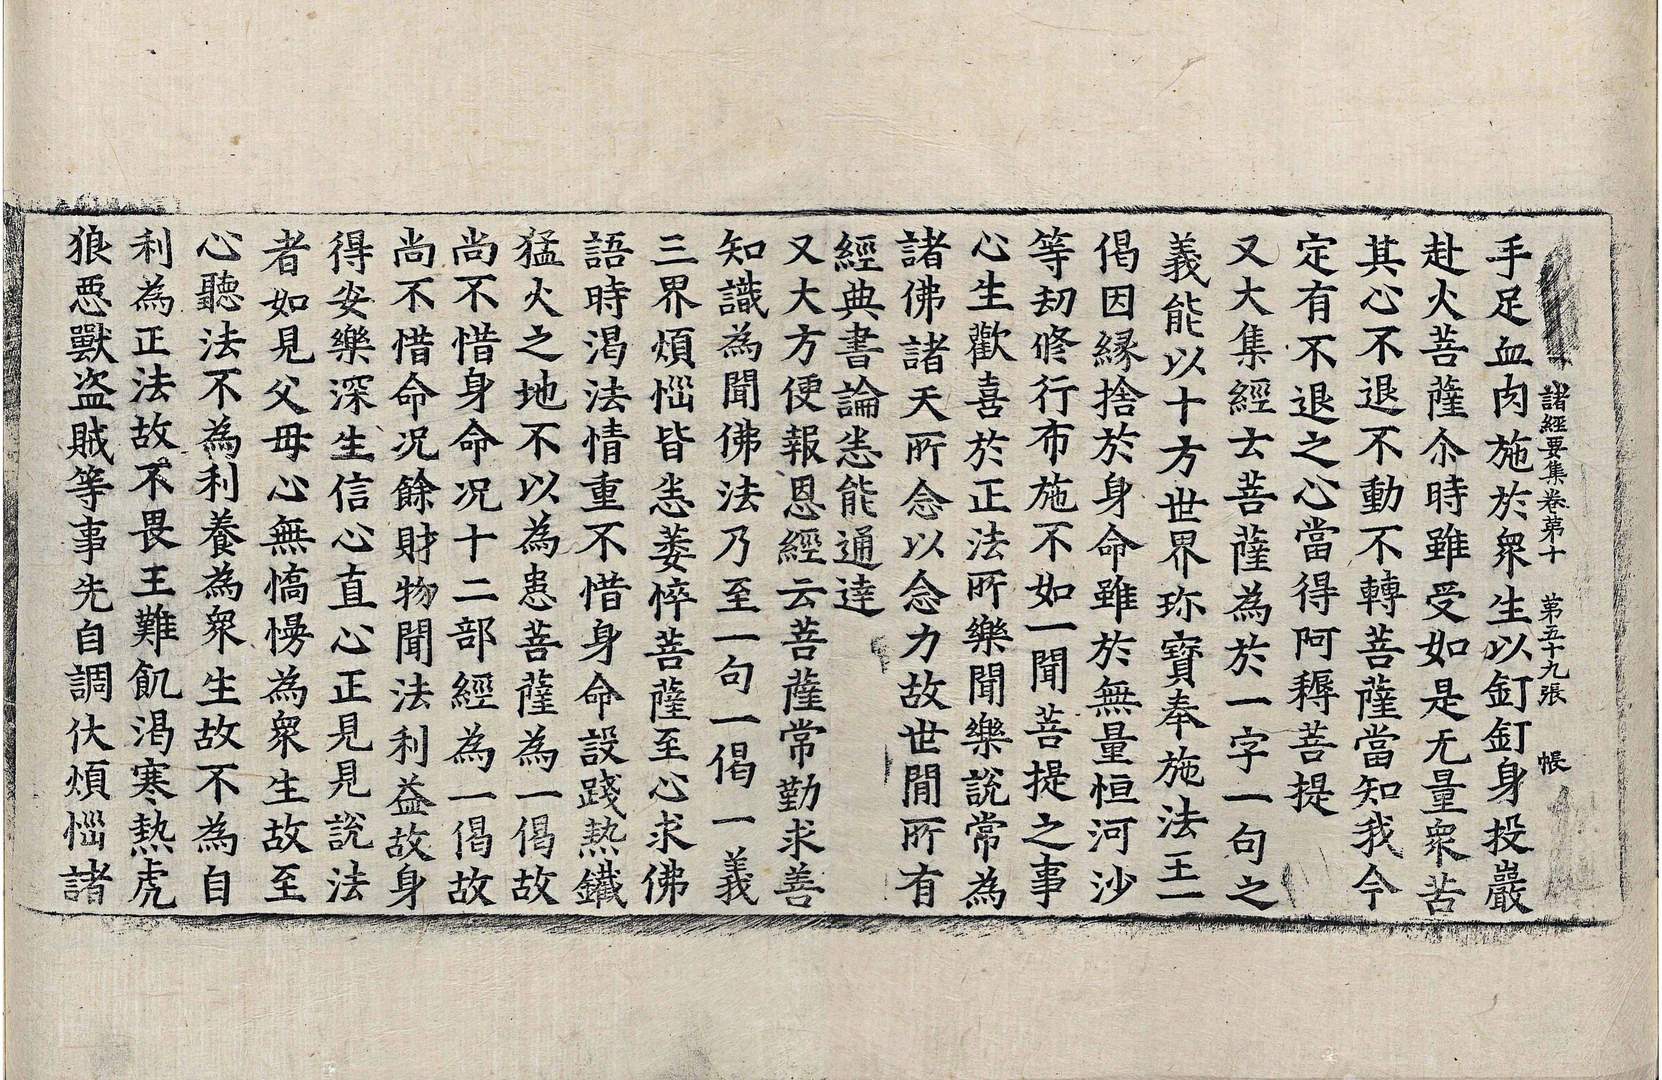 諸經要集卷第十 第五十九張 帳
手足血肉施於衆生以釘釘身投巖
赴火菩薩尒時雖受如是无量衆苦
其心不退不動不轉菩薩當知我今
定有不退之心當得阿耨菩提
又大集經云菩薩為於一字一句之
義能以十方世界珎寶奉施法王一
偈因縁捨於身命雖於無量恒河沙
等劫修行布施不如一聞菩提之事
心生歡喜於正法所樂聞樂說常為
諸佛諸天所念以念力故世閒所有
經典書論悉能通達
又大方便報恩經云菩薩常勤求善
知識為聞佛法乃至一句一偈一義
三界煩惱皆悉萎悴菩薩至心求佛
語時渇法情重不惜身命設踐熱鐵
猛火之地不以為患菩薩為一偈故
尚不惜身命况十二部經為一偈故
尚不惜命况餘財物聞法利益故身
得安樂深生信心直心正見見說法
者如見父母心無憍慢為衆生故至
心聽法不為利養為衆生故不為自
利為正法故不畏王難飢渇寒熱虎
狼惡獸盗賊等事先自調伏煩惱諸